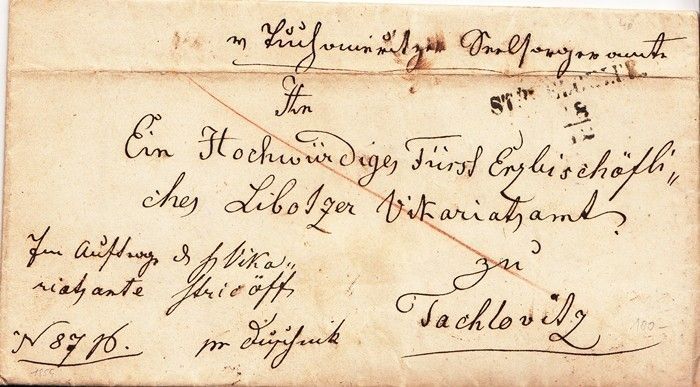 v Tuchoměritzer Seelsorgeramte
An
Ein Hochwürdiges Fürst Erzbischöfli„
ches Libotzer Vikariatsamt
zu
Tachlovitz
Im Auftrage d h Vika„
riatsamte
N 87 pr Duschnik
100-